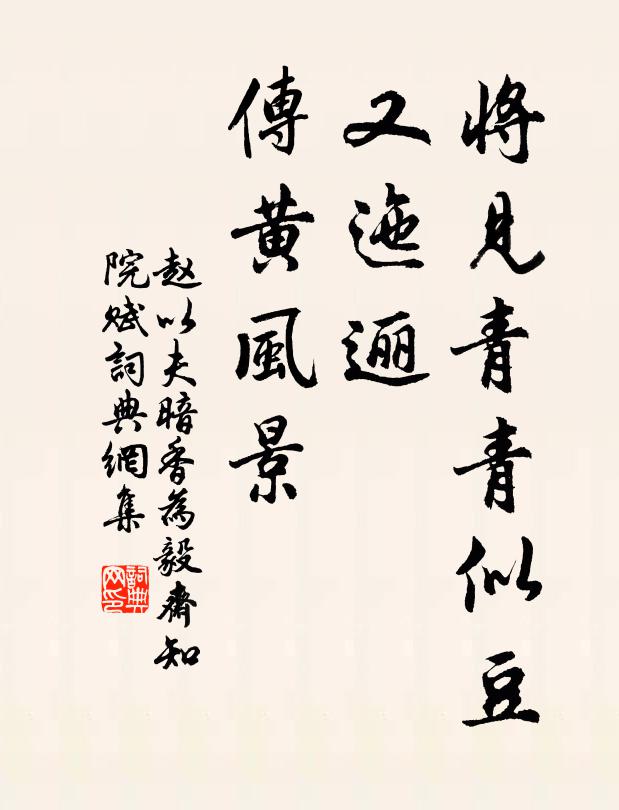 將見青青似豆
又迤逦
傳黄風景
赵以夫暗香為毅齋知
院赋詞典網集
詞典
网印